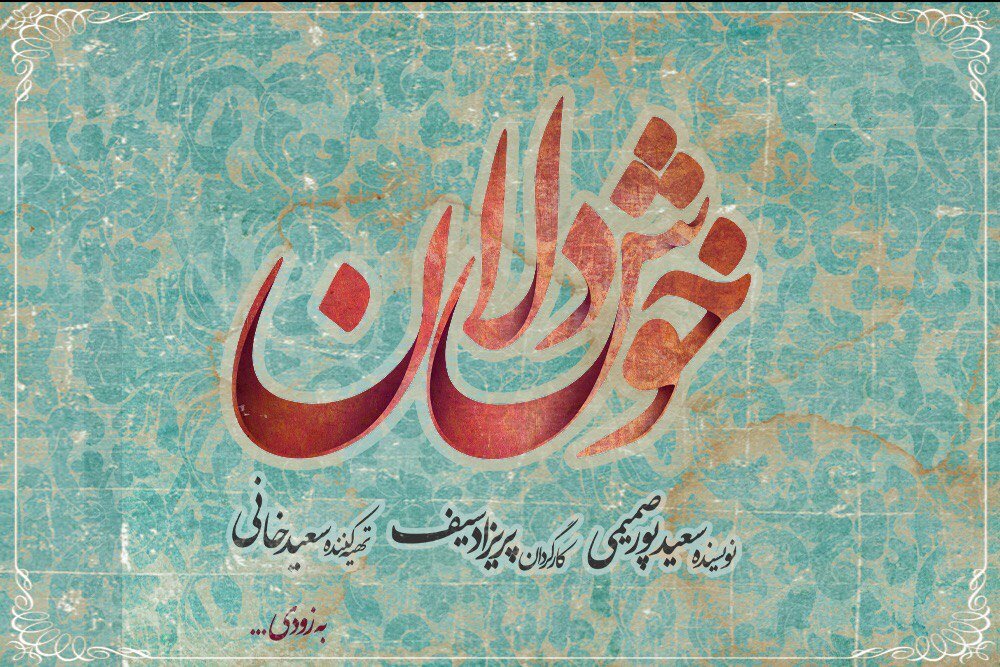 خوش‌دلان
نویسنده سعید پورصمیمی کارگردان پریزاد سیف تهیه‌کننده سعید خانی
به زودی...